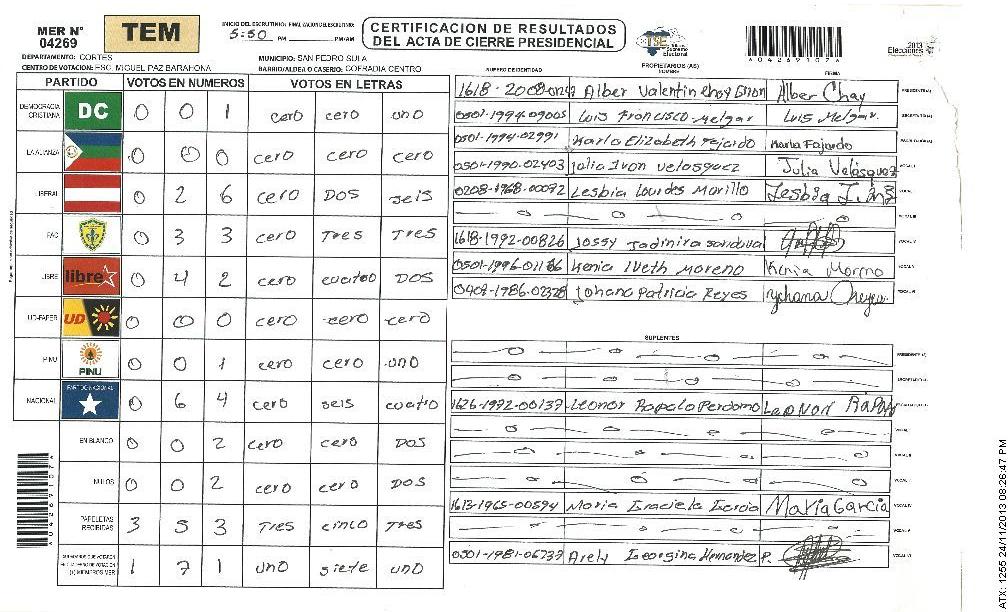 MER N° 04269
TEM
INICIO DEL ESCRUTINIO: FINALIZACION DEL ESCRUTINIO:
5:50 PM PM/AM
CERTIFICACION DE RESULTADOS
DEL ACTA DE CIERRE PRESIDENCIAL
TSE Tribunal Supremo Electoral
6042691076
2013 Elecciones
DEPARTAMENTO: CORTES
MUNICIPIO: SAN PEDRO SULA
CENTRO DE VOTACION: ESC. MIGUEL PAZ BARAHONA
BARRIO/ALDEA O CASERIO: COFRADIA CENTRO
PARTIDO VOTOS EN NUMEROS VOTOS EN LETRAS
DEMOCRACIA CRISTIANA DC 0 0 1 cero cero uno
LA ALIANZA 0 0 0 cero cero cero
LIBERAL 0 2 6 cero DOS seis
PAC 0 3 3 cero Tres Tres
LIBRE libre 0 4 2 cero cuatro DOS
UD-FAPER UD 0 0 0 cero cero cero
PINU PINU 0 0 1 cero cero uno
NACIONAL PARTIDO NACIONAL 0 6 4 cero seis cuatro
EN BLANCO 0 0 2 cero cero DOS
NULOS 0 0 2 cero cero DOS
PAPELETAS RECIBIDAS 3 5 3 Tres cinco Tres
CIUDADANOS QUE VOTARON EN CUADERNO DE VOTACION (+) MIEMBROS MER 1 7 1 uno siete uno
NUMERO DE IDENTIDAD PROPIETARIOS (AS) NOMBRE FIRMA
Alber Valentin Chay Alber Chay PRESIDENTE(A)
0501-1994-09005 Luis Francisco Melgar Luis Melgar. SECRETARIO(A)
0501-1994-02991 Karla Elizabeth Fajardo Karla Fajardo
0501-1990-02403 Julia Ivon Velasquez Julia Velásquez VOCAL I
0208-1968-00092 Lesbia Lourdes Morillo VOCAL II
VOCAL III
1618-1992-00826 Jossy Jadinira Sandoval VOCAL IV
0501-1996-01186 Kenia Iveth Moreno Kenia Moreno VOCAL V
Johana Patricia Reyes VOCAL VI
SUPLENTES
PRESIDENTE (A)
SECRETARIO(A)
1626-1972-00137 Leonor Rapalo Perdomo Leonor Rapalo
VOCAL I
VOCAL II
VOCAL III
1613-1965-00594 Maria Graciela Garcia Maria Garcia VOCAL IV
VOCAL V
0501-1981-06737 Arely Georgina Hernandez P. VOCAL VI
6042691076
ATX: 1255 24/11/2013 08:26:47 PM